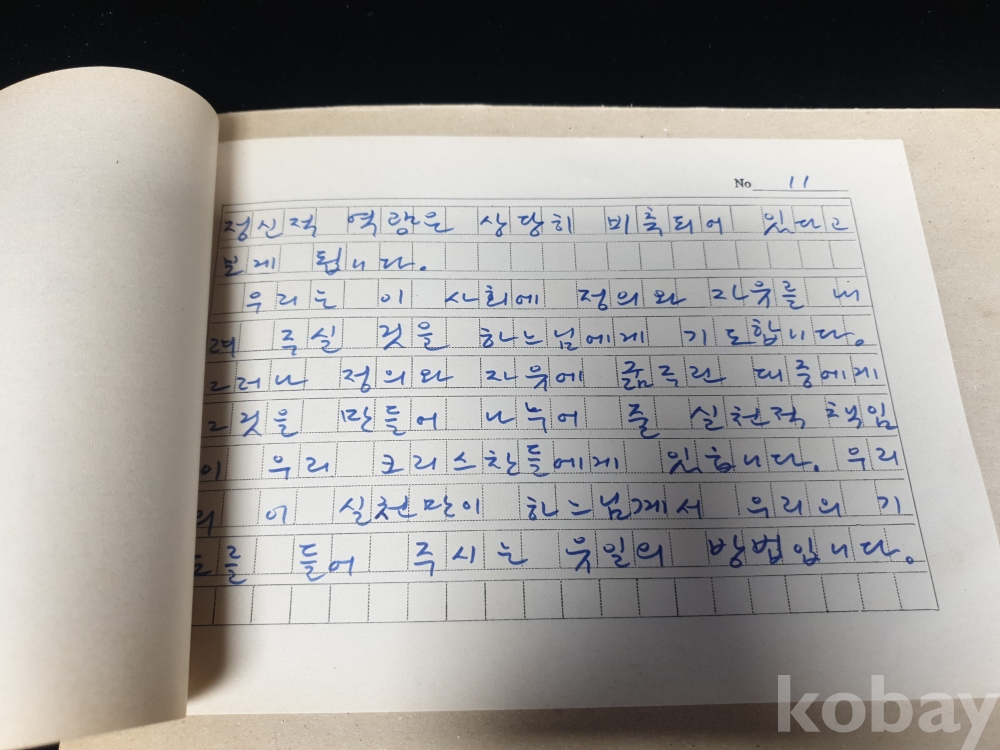 No 11
정신적 역량은 상당히 비축되어 있다고
보게 됩니다.
우리는 이 사회에 정의와 자윳를 내
려 주실 것을 하느님에게 기도합니다.
그러나 정의와 자윳에 굶주린 대중에게
그것을 만들어 나누어 줄 실천적 책임
이 우리 크리스찬들에게 있합니다. 우리
의 이 실천만이 하느님께서 우리의 기
도를 들어 주시는 윳일의 방법입니다.
kobay